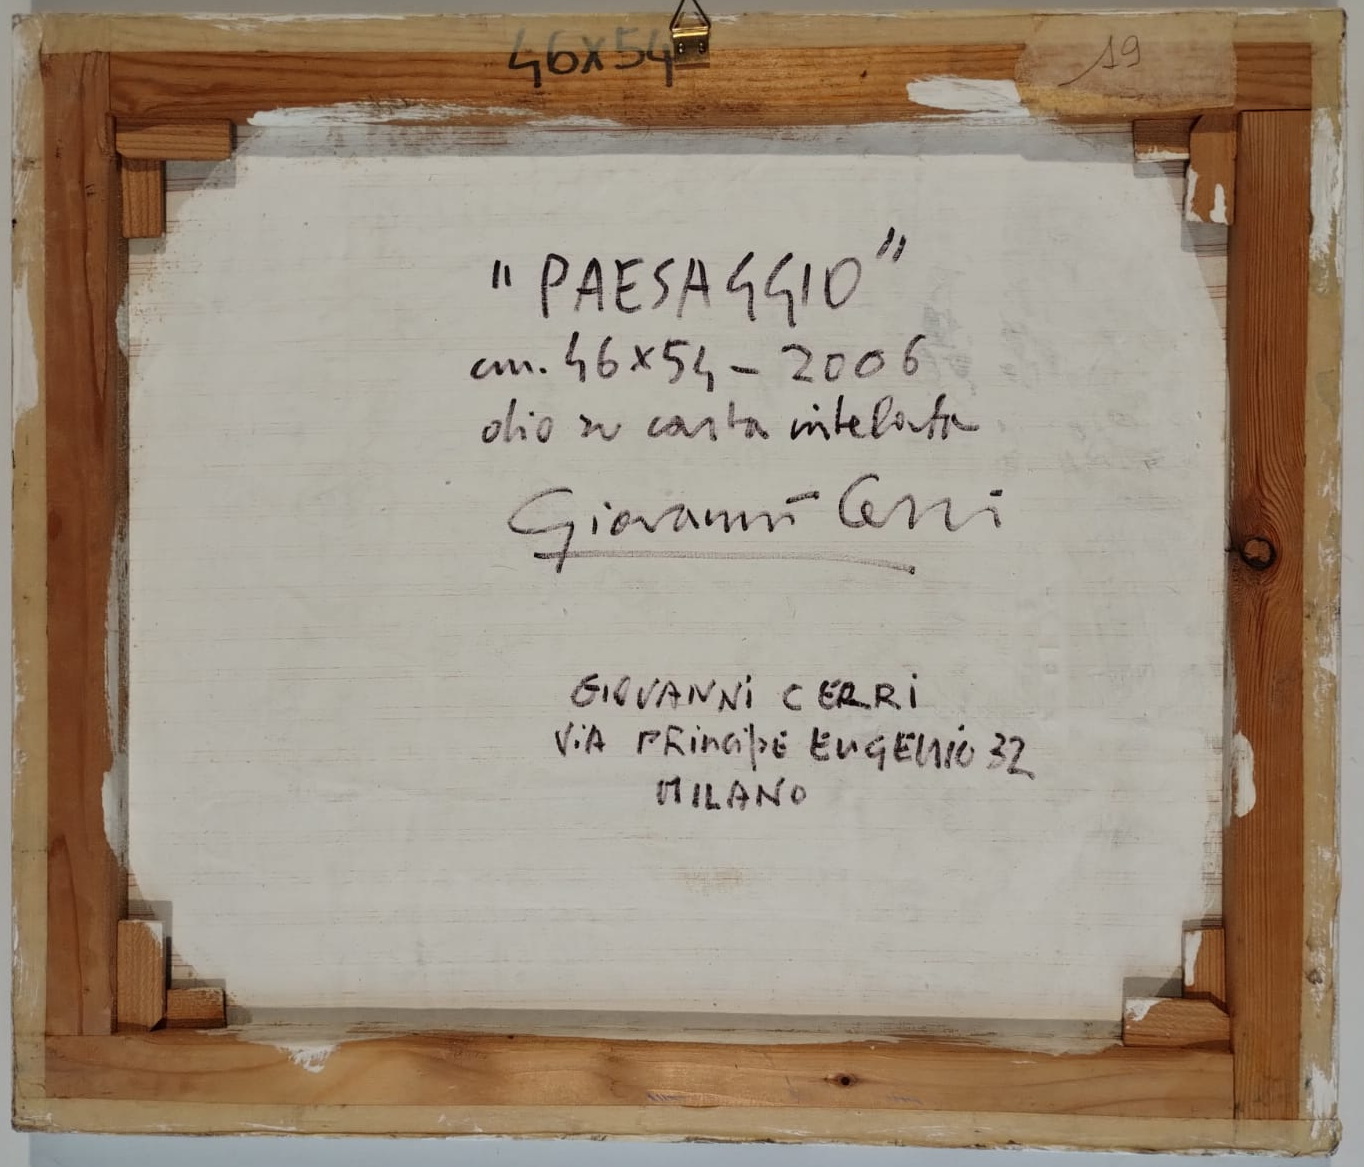 46x54
19
"PAESAGGIO"
cm. 46x54 - 2006
olio su carta intelata
Giovanni Cerri
GIOVANNI CERRI
ViA PRincipE EUGENIO 32
MILANO